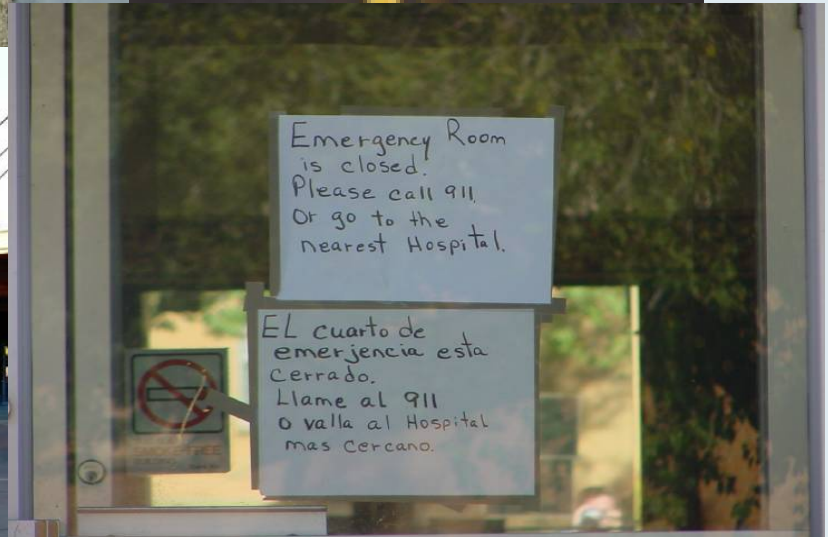 Emergency Room
is closed.
Please call 911
Or go to the
nearest Hospital.
EL cuarto de
emerjencia esta
cerrado.
Llame al 911
o valla al Hospital
mas cercano.